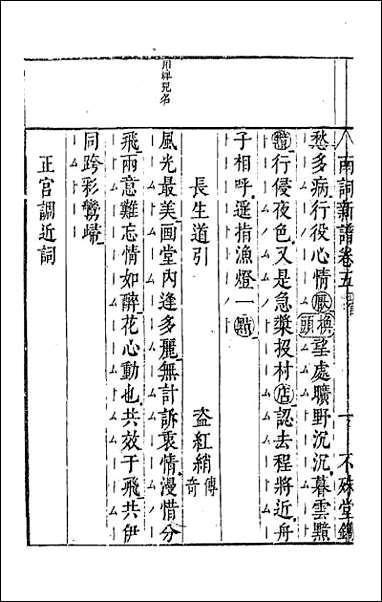 南詞新譜卷五 不殊堂鐫
愁多病行役心情厭換頭望處曠野沉沉暮雲黯
黯行侵夜色又是急槳投村店認去程將近舟
子相呼遥指漁燈一點
長生道引 盗紅綃傳奇
風光最美画堂內逢多麗無計訴衷情漫惜分
飛兩意難忘情如醉花心動也共效于飛共伊
同跨彩鸞歸
正宫調近詞